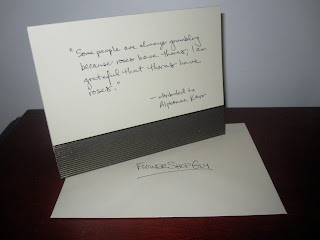 "Some people are always grumbling
because roses have thorns; I am
grateful that thorns have
roses."
— attributed to
Alphonse Karr
FLOWER SHOP GUY